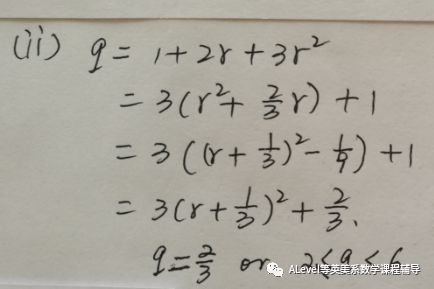 (ii) q = 1+2r+3r²
= 3(r²+ 2/3 r)+1
= 3((r+1/3)²-1/9)+1
= 3(r+1/3)²+2/3.
q=2/3 or 2<q<6
ALevel等英美系数学课程辅导